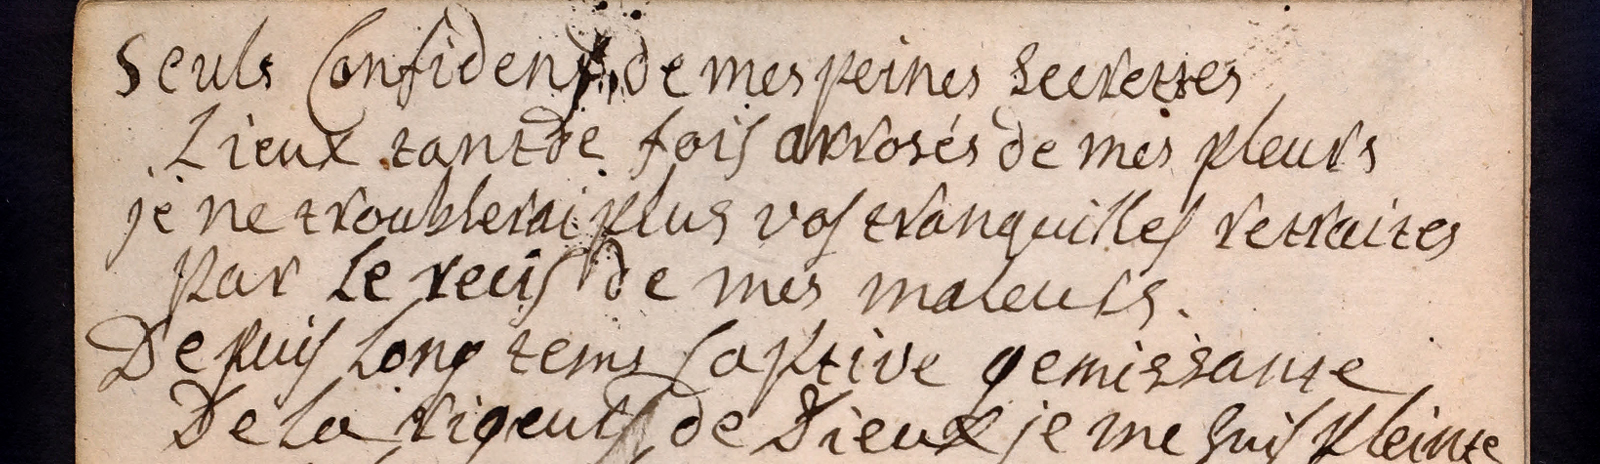 Seuls Confidens de mes peines secrettes
Lieux tant de fois arrosés de mes pleurs
je ne troublerai plus vos tranquilles retraites
par le recis de mes maleurs.
Depuis long tems captive gemissante
De la rigeurs de Dieux je me suis pleinte